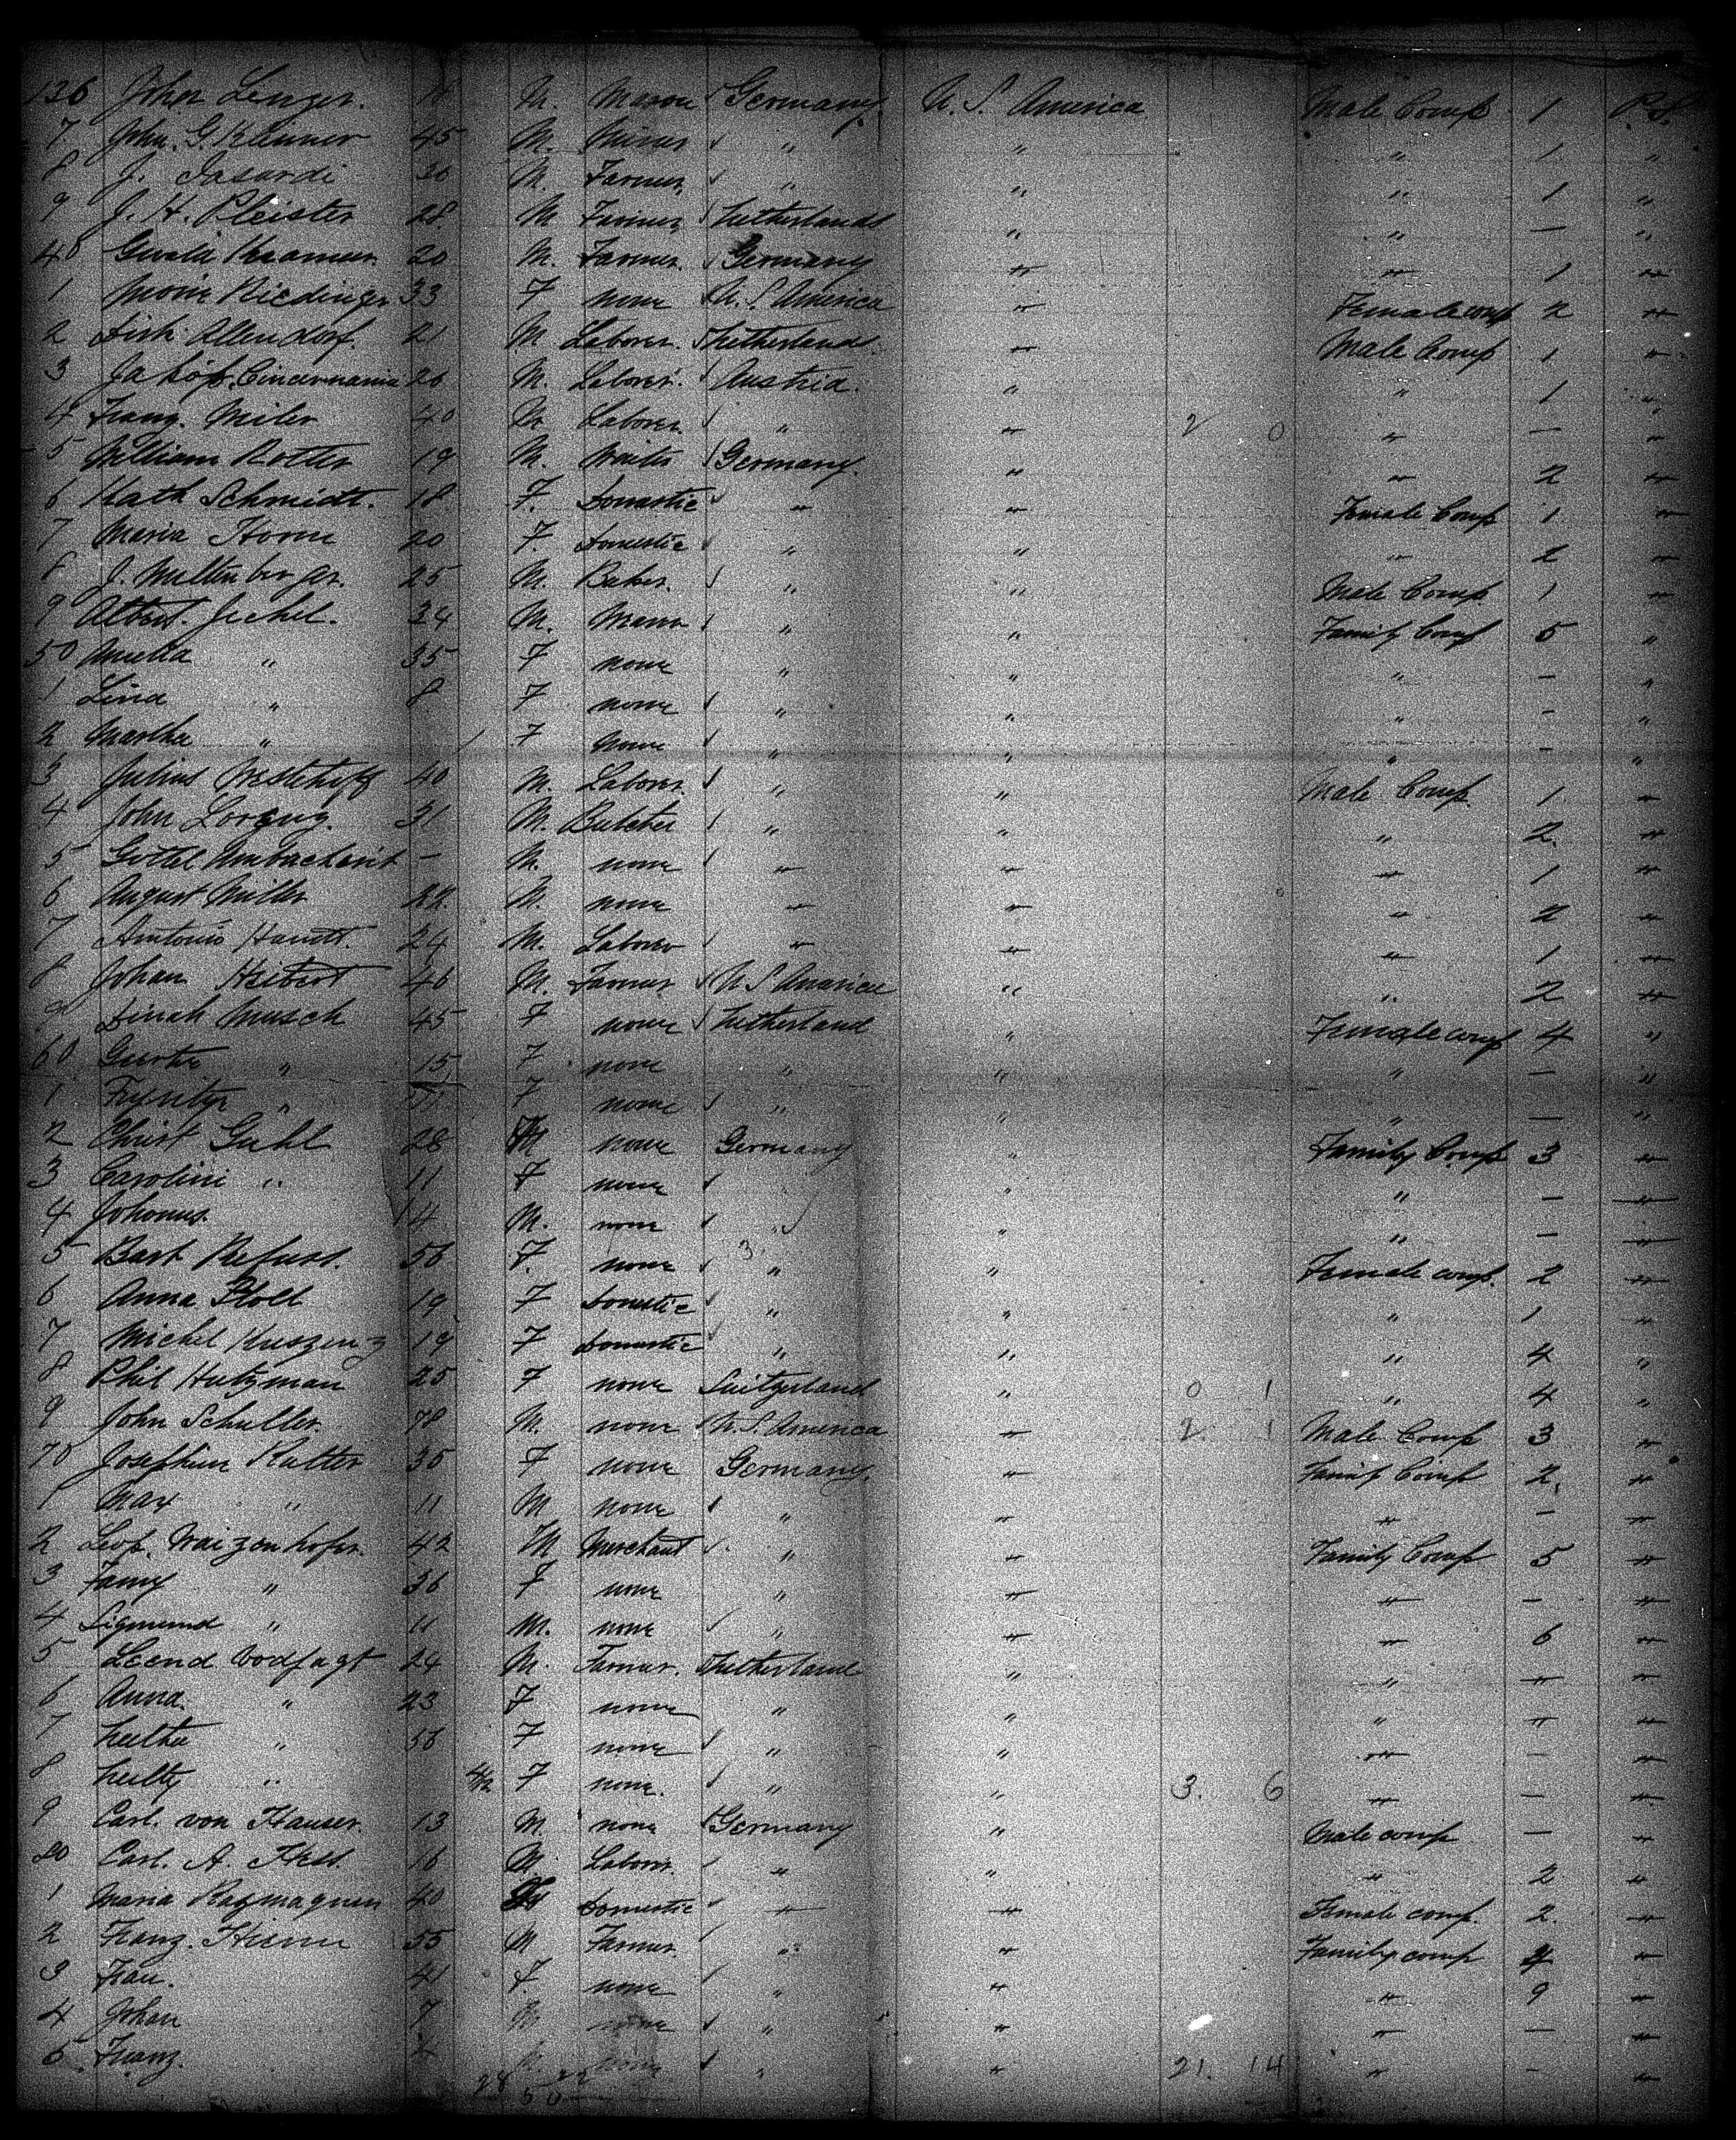 136 John Lenger. 18 M. Mason Germany U. S. America Male Comp 1 P. S.
7 John. G. Klenner 45 M. Miner " " " 1 "
8 J. Jasardi 30 M. Farmer " " " 1 "
9 J. H. Pleister 28. M Farmer Netherlands " " — "
40 Kraemer 20 M. Farmer. Germany " " 1 "
1 Riedinger 33 F none U. S. America " Female comp 2 "
2 Dirk Allendorf. 21 M Laborer. Netherland. " Male Comp 1 "
3 Jakob. 26 M. Laborer. Austria. " " 1 "
4 Franz. Miler 40 M Laborer. " " 2 0 " — "
5 William Rotter 19 M. Waiter Germany. " " 2 "
6 Kath Schmidt. 18 F. Domestic " " Female Comp 1 "
7 Maria Horn 20 F. Domestic " " " 2 "
8 J. Miltenberger. 25 M. Baker. " " Male Comp. 1 "
9 Albert. Jechel. 34 M. " " Family Comp 5 "
50 Amelia " 35 F none " " " — "
1 Lina " 8 F none " " " — "
2 Martha " 1 F none " " " — "
3 Julius Westehoff 40 M. Laborer. " " Male Comp. 1 "
4 John Loreng. 31 M. Butcher " " " 2. "
5 Gottel — M. none " " " 1 "
6 August Miller 22. M. none " " " 2 "
7 Antonio 24 M. Laborer " " " 1 "
8 Johan Heibert 46 M. Farmer U S America " " 2 "
9 Dinah Musch 45 F none Netherland " Female comp 4 "
60 Geertie " 15 F none " " " — "
1 " F none " " " — "
2 Christ Guhl 28 M none Germany " Family Comp 3 "
3 Carolini " 11 F none " " " — "
4 Johonus. 4 M. none " " " — "
5 Bart Refuss. 56 F. none " " Female comp. 2 "
6 Anna Stoll 19 F Domestic " " " 1 "
7 Michel 19 F Domestic " " " 4 "
8 Phil Hutzman 25 F none Switzerland " 0 1 " 4 "
9 John Schuller. 78 M. none U. S. America " 2. 1 Male Comp 3 "
70 Josephine Rutter 30 F none Germany. " Family Comp 2. "
1 Max " 11 M none " " " — "
2 Leop. Waizenhofer. 42 M Merchant " " Family Comp 5 "
3 Fanny " 36 F none " " " — "
4 Sigmund " 11 M. none " " " 6 "
5 Leend Vodfagt 24 M. Farmer. Netherland " " " "
6 Anna. " 23 F none " " " " "
7 " 56 F none " " " — "
8 " 4/12 F none. " " 3. 6 " — "
9 Carl. von Hauser. 13 M. none Germany " Male comp — "
80 Carl. A. Hess. 16 M. Laborer. " " " 2 "
1 Maria 40 F Domestic " " Female comp. 2. "
2 Franz. 55 M Farmer. " " Family comp 4 "
3 Frau. 41 F. none " " " 9 "
4 Johan 7 M none " " " — "
5 Franz. none " " 21. 14 " — "
28 22
50